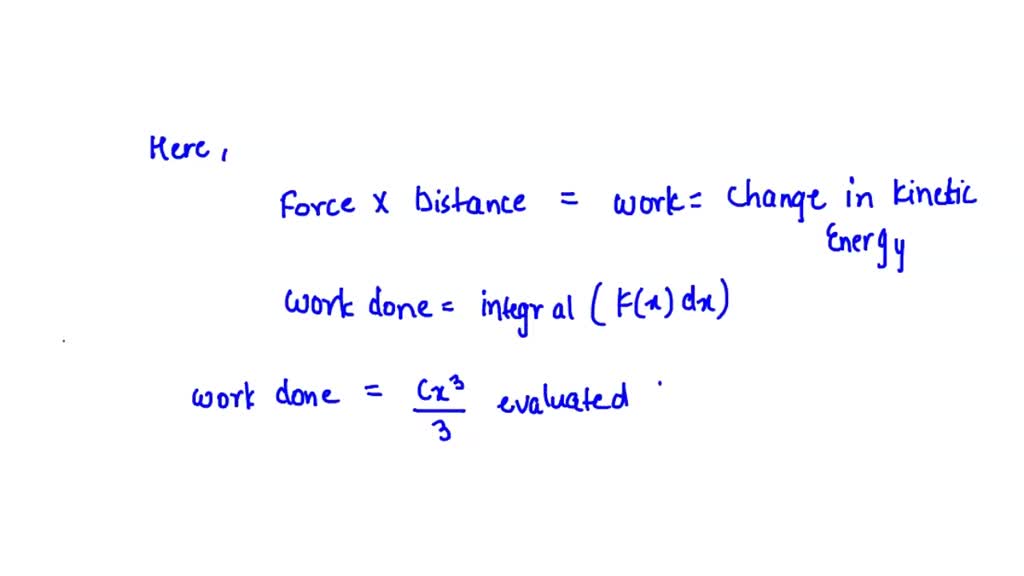 Here,
Force X Distance = work = Change in kinetic
Energy
work done = integral (F(x) dx)
work done = Cx³/3 evaluated